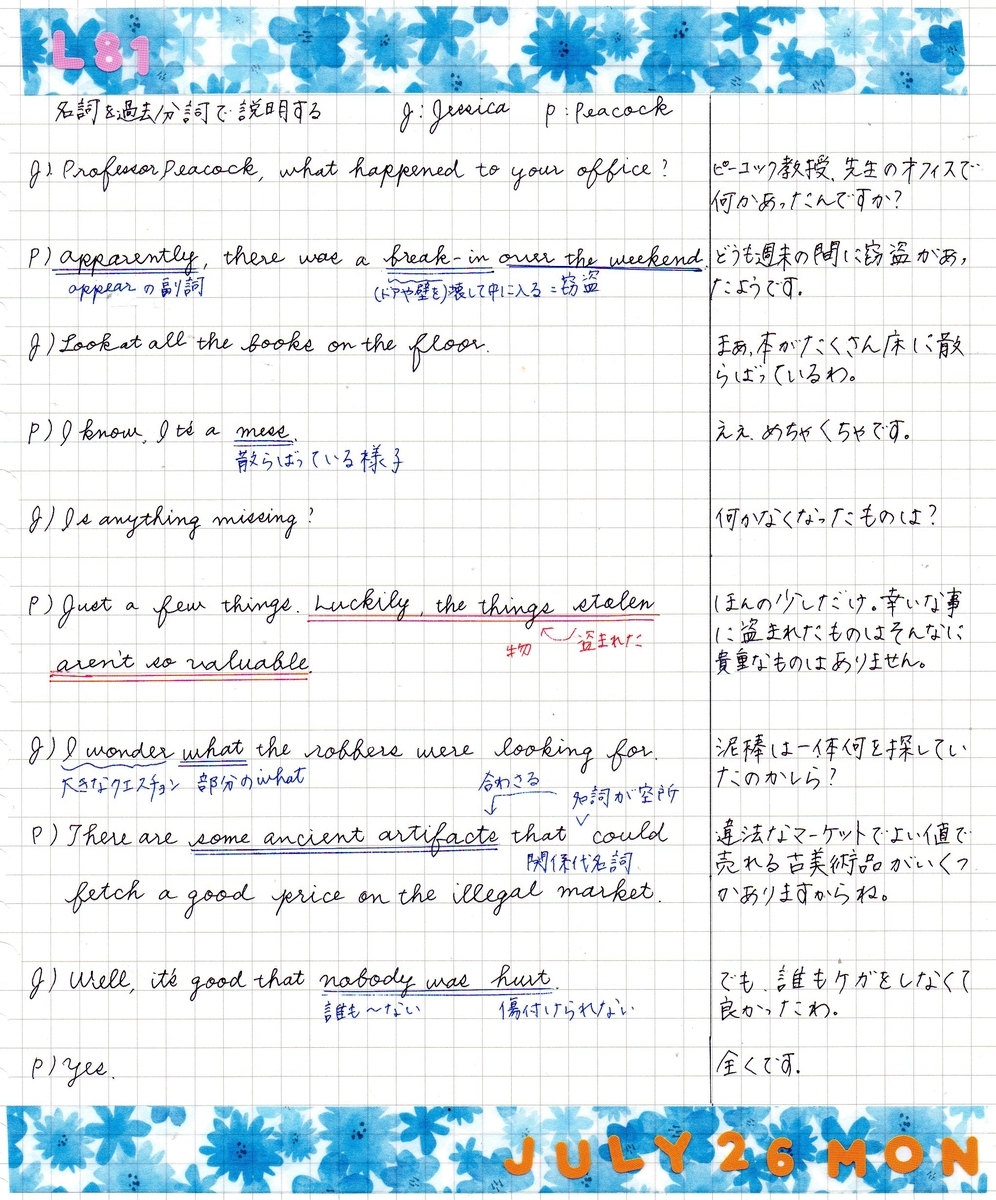 L81
名詞を過去分詞で説明する J:Jessica P:Peacock
J) Professor Peacock, what happened to your office?
ピーコック教授、先生のオフィスで
何かあったんですか?
P) apparently, there was a break-in over the weekend.
appearの副詞 (ドアや壁を)壊して中に入る=窃盗
どうも週末の間に窃盗があっ
たようです。
J) Look at all the books on the floor.
まぁ、本がたくさん床に散
らばっているわ。
P) I know, It's a mess.
散らばっている様子
ええ、めちゃくちゃです。
J) Is anything missing?
何かなくなったものは?
P) Just a few things. Luckily, the things stolen
物 盗まれた
aren't so valuable.
ほんの少しだけ。幸いな事
に盗まれたものはそんなに
貴重なものはありません。
J) I wonder what the robbers were looking for.
大きなクエスチョン 部分のwhat
泥棒は一体何を探してい
たのかしら?
合わさる 名詞が空所
P) There are some ancient artifacts that could
関係代名詞
fetch a good price on the illegal market.
違法なマーケットでよい値で
売れる古美術品がいくつ
かありますからね。
J) Well, it's good that nobody was hurt.
誰も〜ない 傷付けられない
でも、誰もケガをしなくて
良かったわ。
P) Yes.
全くです。
JULY 26 MON